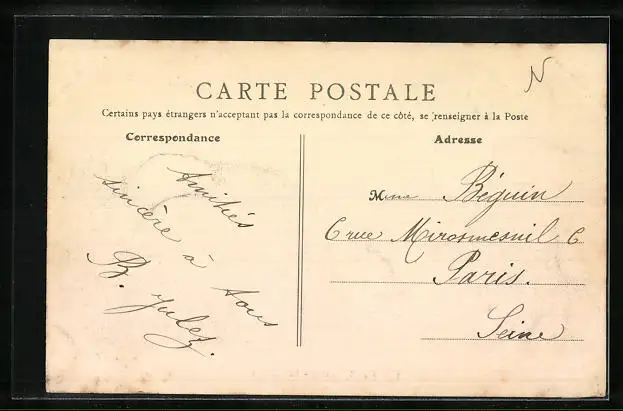 N
CARTE POSTALE
Certains pays étrangers n'acceptant pas la correspondance de ce côté, se renseigner à la Poste
Correspondance
Amitiés
sincère à tous
B. Julez.
Adresse
Mme Béguin
6 rue Miromesnil 6
Paris.
Seine